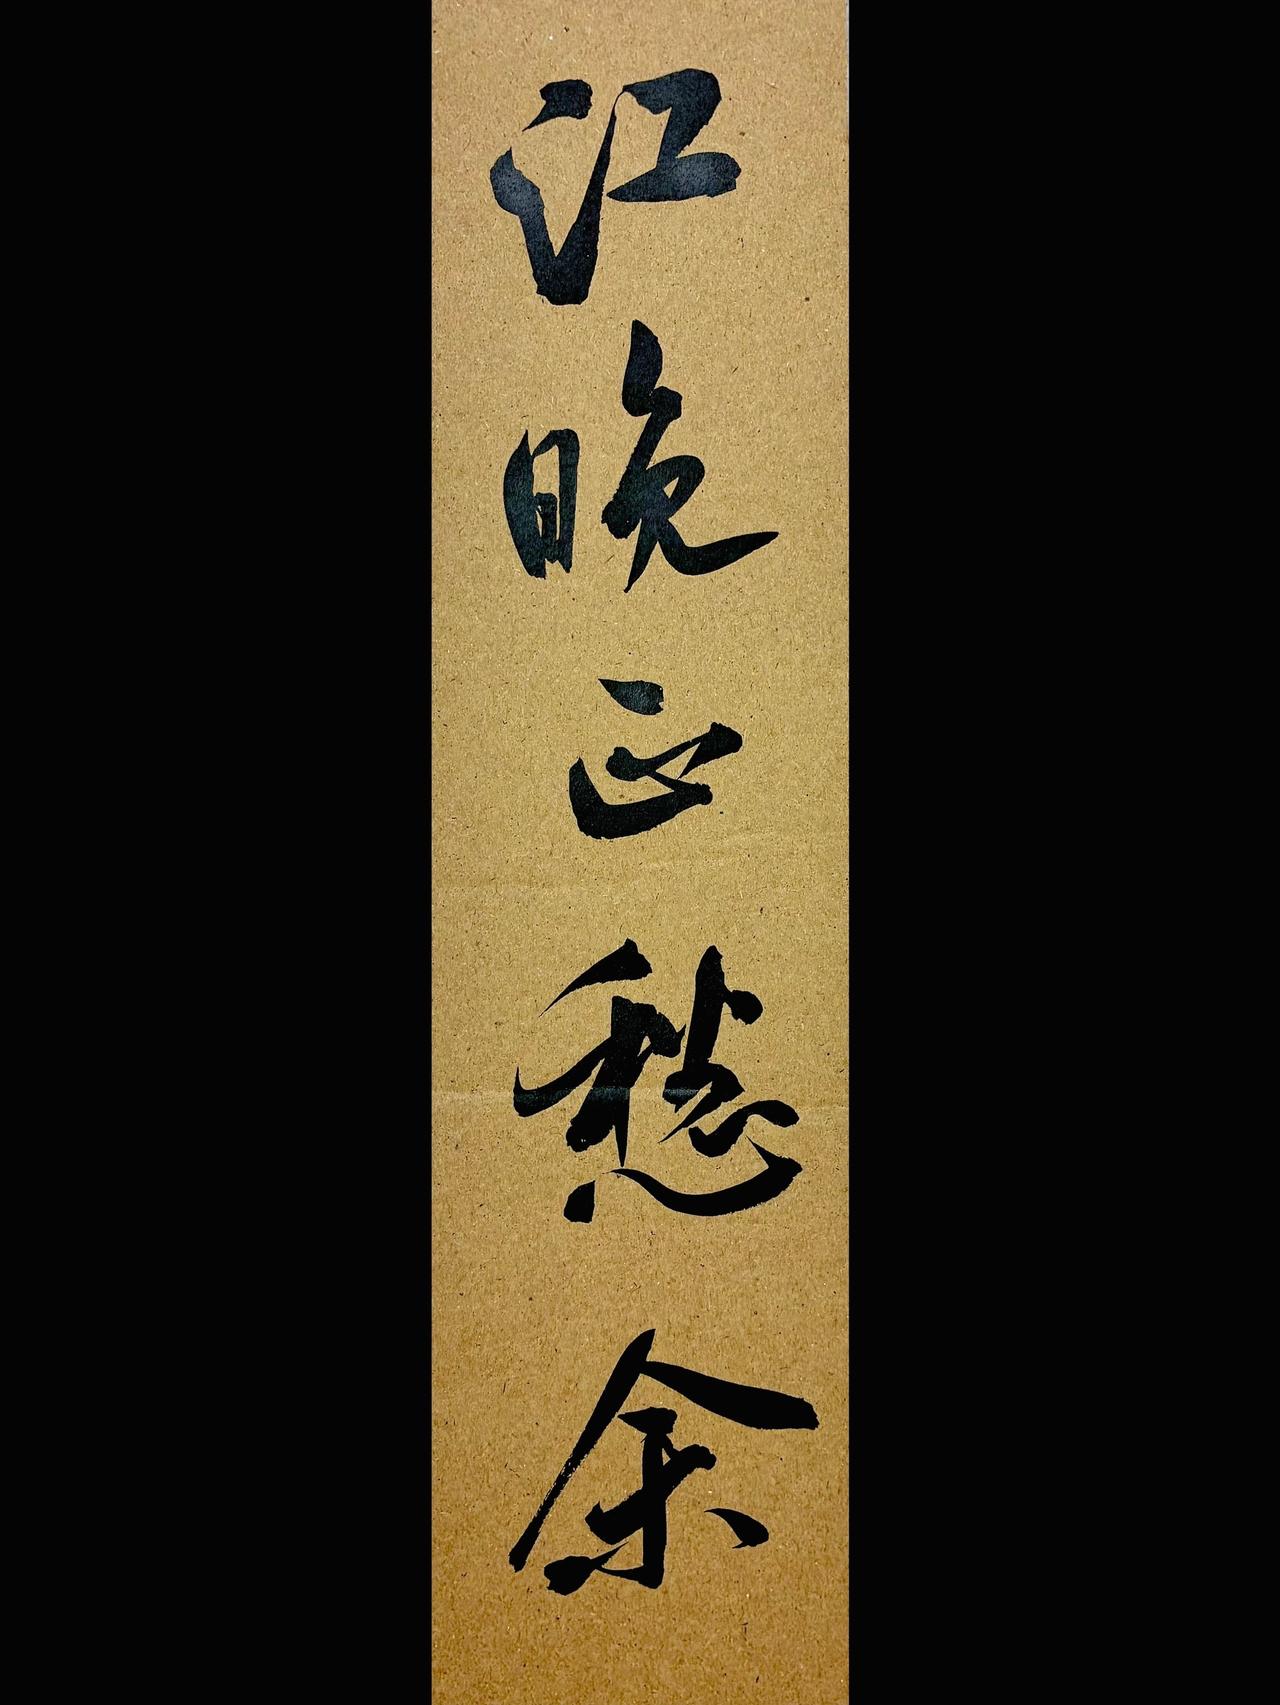 江晚正愁余